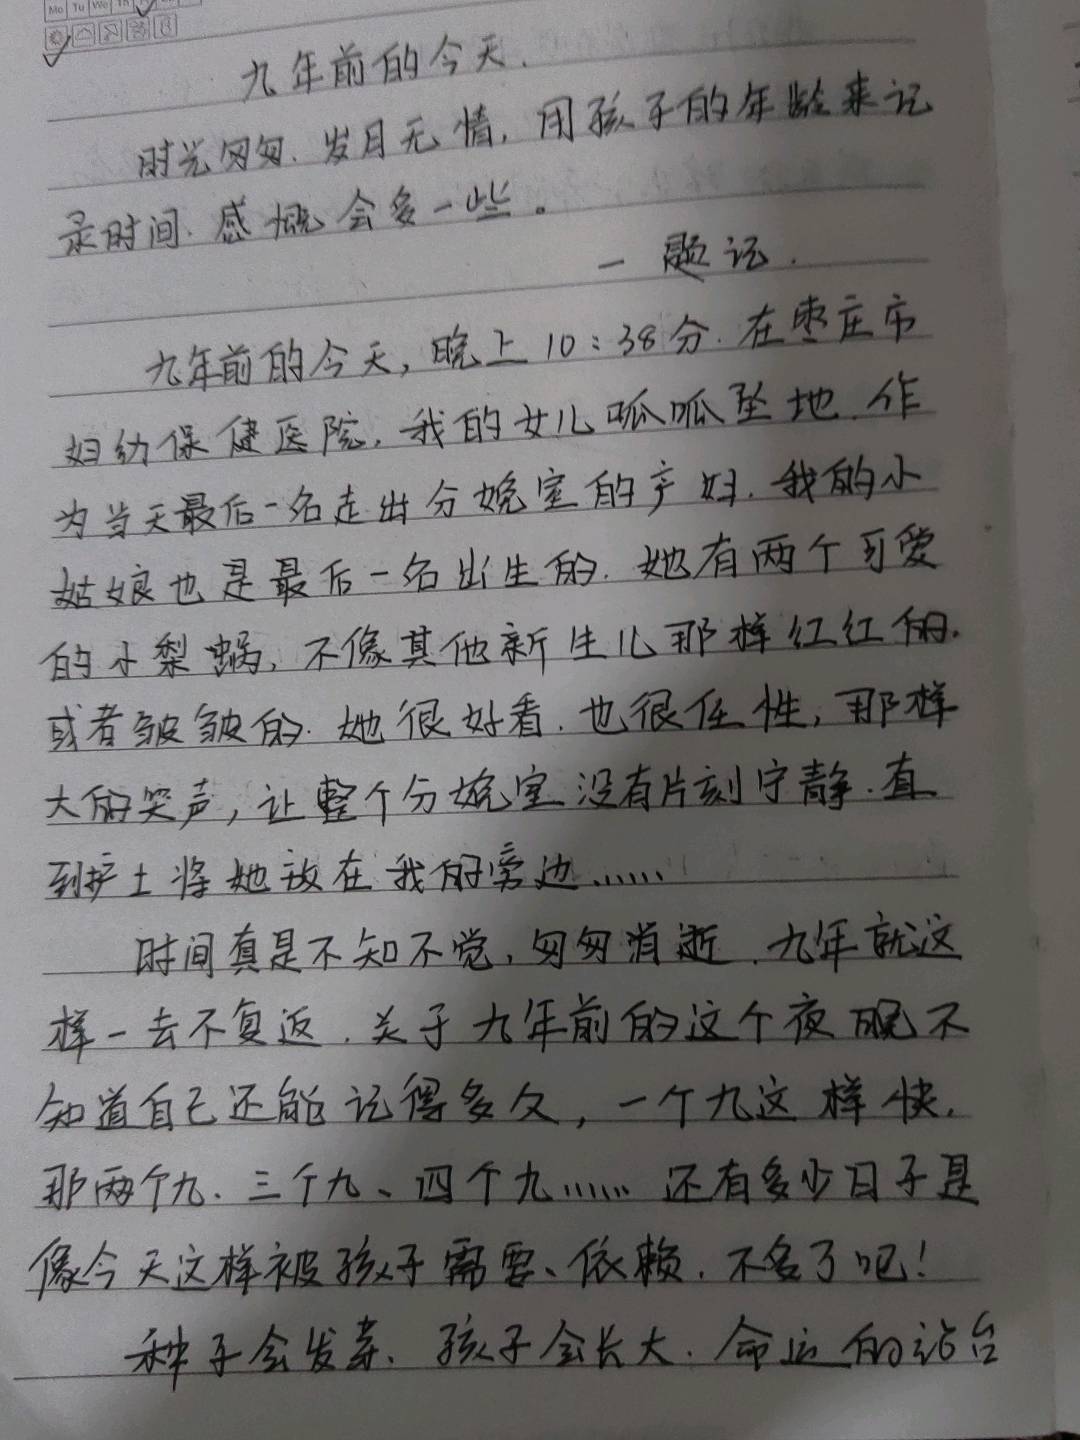 Mo Tu We Th
九年前的今天.
时光匆匆.岁月无情,用孩子的年龄来记
录时间.感慨会多一些。
一题记.
九年前的今天,晚上10:38分.在枣庄市
妇幼保健医院,我的女儿呱呱坠地.作
为当天最后一名走出分娩室的产妇.我的小
姑娘也是最后一名出生的.她有两个可爱
的小梨蜗,不像其他新生儿那样红红的.
或者皱皱的.她很好看.也很任性,那样
大的哭声,让整个分娩室没有片刻宁静.直
到护士将她放在我的旁边......
时间真是不知不觉,匆匆消逝.九年就这
样一去不复返.关于九年前的这个夜晚不
知道自己还能记得多久,一个九这样快.
那两个九、三个九、四个九......还有多少日子是
像今天这样被孩子需要、依赖.不多了吧!
种子会发芽、孩子会长大.命运的站台